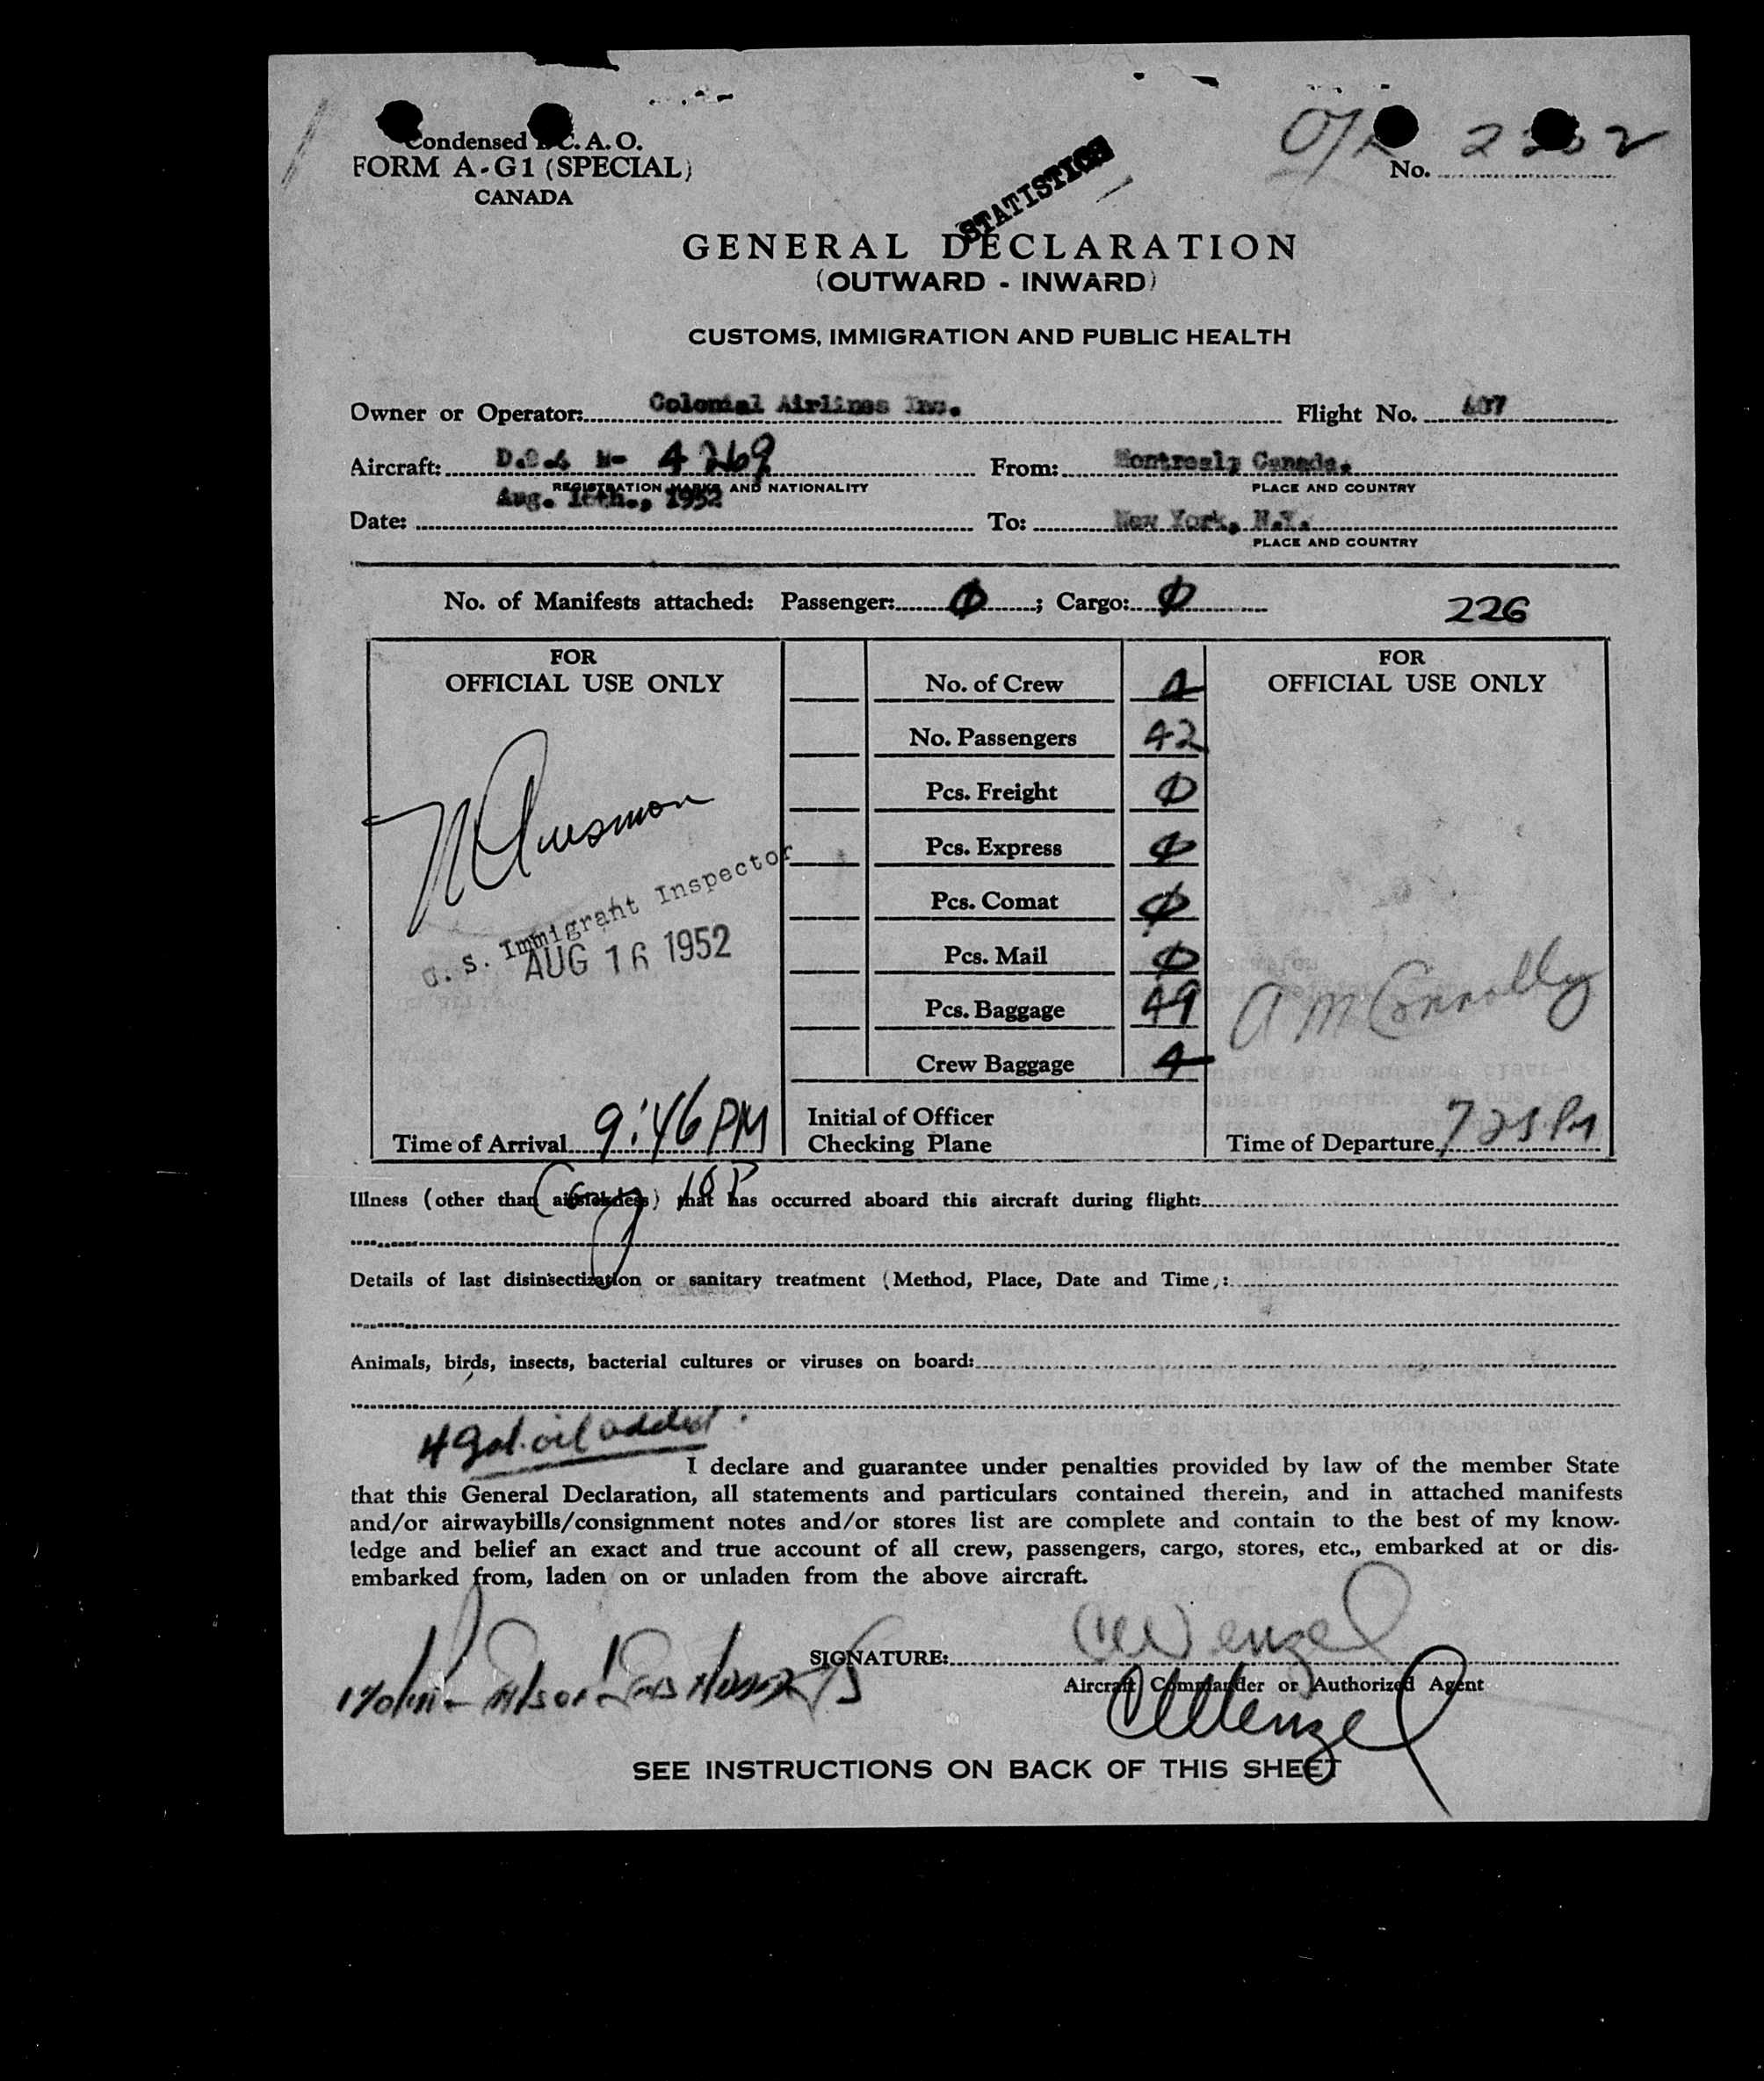 Condensed I.C.A.O.
No. 2202
FORM A-G1 (SPECIAL)
CANADA
STATISTICS
GENERAL DECLARATION
(OUTWARD - INWARD)
CUSTOMS, IMMIGRATION AND PUBLIC HEALTH
Owner or Operator: Colonial Airlines Inc. Flight No.
Aircraft: D.C.4 N- 4269 From: Montreal, Canada.
REGISTRATION MARKS AND NATIONALITY PLACE AND COUNTRY
Date: Aug. 16th., 1952 To: New York, N.Y.
PLACE AND COUNTRY
No. of Manifests attached: Passenger: 0; Cargo: 0 226
FOR OFFICIAL USE ONLY
No. of Crew 4
No. Passengers 42
Pcs. Freight 0
Pcs. Express 0
Pcs. Comat 0
Pcs. Mail 0
Pcs. Baggage 49
Crew Baggage 4
FOR OFFICIAL USE ONLY
U. S. Immigrant Inspector
AUG 16 1952
A M Connolly
Time of Arrival 9:46 PM
Initial of Officer
Checking Plane
Time of Departure 725 PM
Illness (other than airsickness) that has occurred aboard this aircraft during flight:
Details of last disinsectization or sanitary treatment (Method, Place, Date and Time):
Animals, birds, insects, bacterial cultures or viruses on board:
4 gal. oil added.
I declare and guarantee under penalties provided by law of the member State
that this General Declaration, all statements and particulars contained therein, and in attached manifests
and/or airwaybills/consignment notes and/or stores list are complete and contain to the best of my know-
ledge and belief an exact and true account of all crew, passengers, cargo, stores, etc., embarked at or dis-
embarked from, laden on or unladen from the above aircraft.
SIGNATURE: CW Wenzel
Aircraft Commander or Authorized Agent
CW Wenzel
SEE INSTRUCTIONS ON BACK OF THIS SHEET